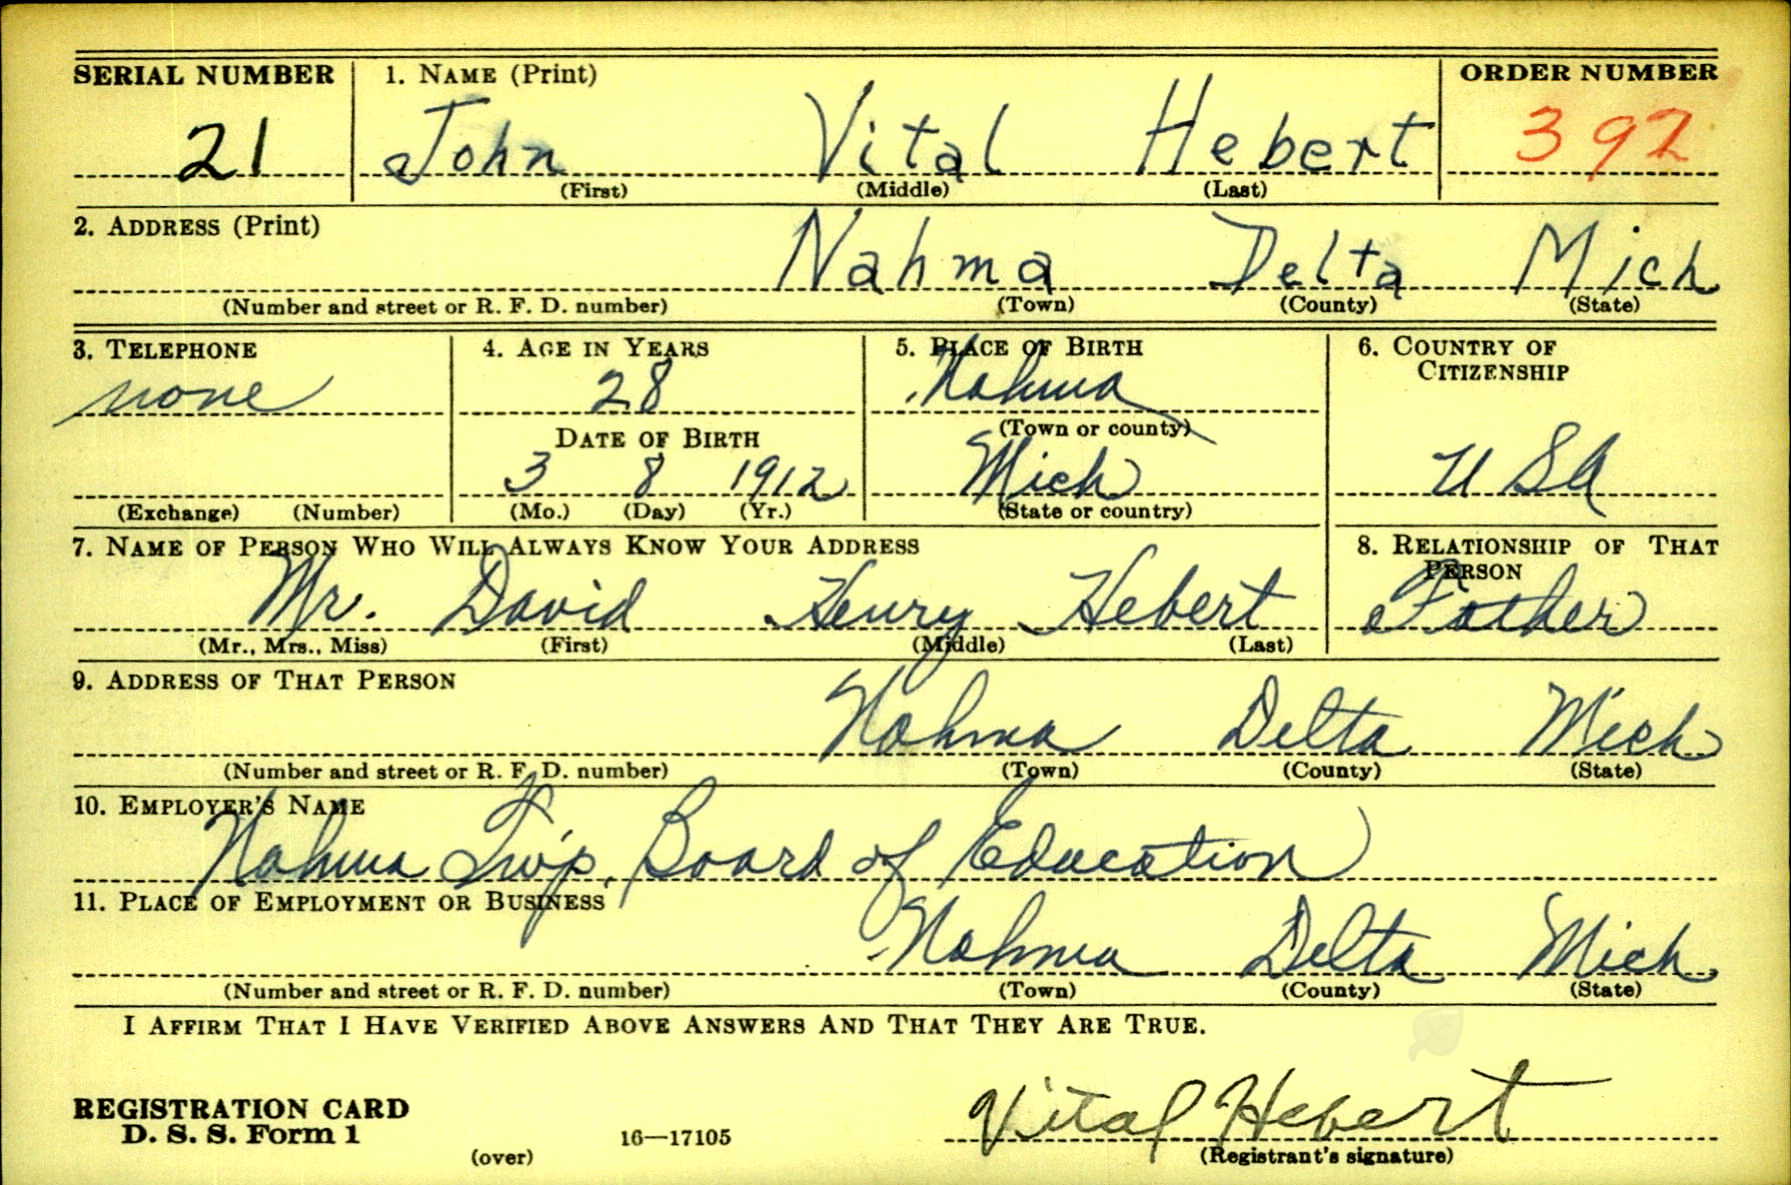 SERIAL NUMBER 1. NAME (Print) ORDER NUMBER
21 John Vital Hebert 392
(First) (Middle) (Last)
2. ADDRESS (Print)
Nahma Delta Mich
(Number and street or R. F. D. number) (Town) (County) (State)
3. TELEPHONE 4. AGE IN YEARS 5. PLACE OF BIRTH 6. COUNTRY OF
CITIZENSHIP
none 28 Nahma
DATE OF BIRTH (Town or county)
3 8 1912 Mich USA
(Exchange) (Number) (Mo.) (Day) (Yr.) (State or country)
7. NAME OF PERSON WHO WILL ALWAYS KNOW YOUR ADDRESS 8. RELATIONSHIP OF THAT
PERSON
Mr. David Henry Hebert Father
(Mr., Mrs., Miss) (First) (Middle) (Last)
9. ADDRESS OF THAT PERSON
Nahma Delta Mich
(Number and street or R. F. D. number) (Town) (County) (State)
10. EMPLOYER'S NAME
Nahma Tw'p. Board of Education
11. PLACE OF EMPLOYMENT OR BUSINESS
Nahma Delta Mich.
(Number and street or R. F. D. number) (Town) (County) (State)
I AFFIRM THAT I HAVE VERIFIED ABOVE ANSWERS AND THAT THEY ARE TRUE.
Vital Hebert
REGISTRATION CARD
D. S. S. Form 1
(over) 16—17105 (Registrant's signature)